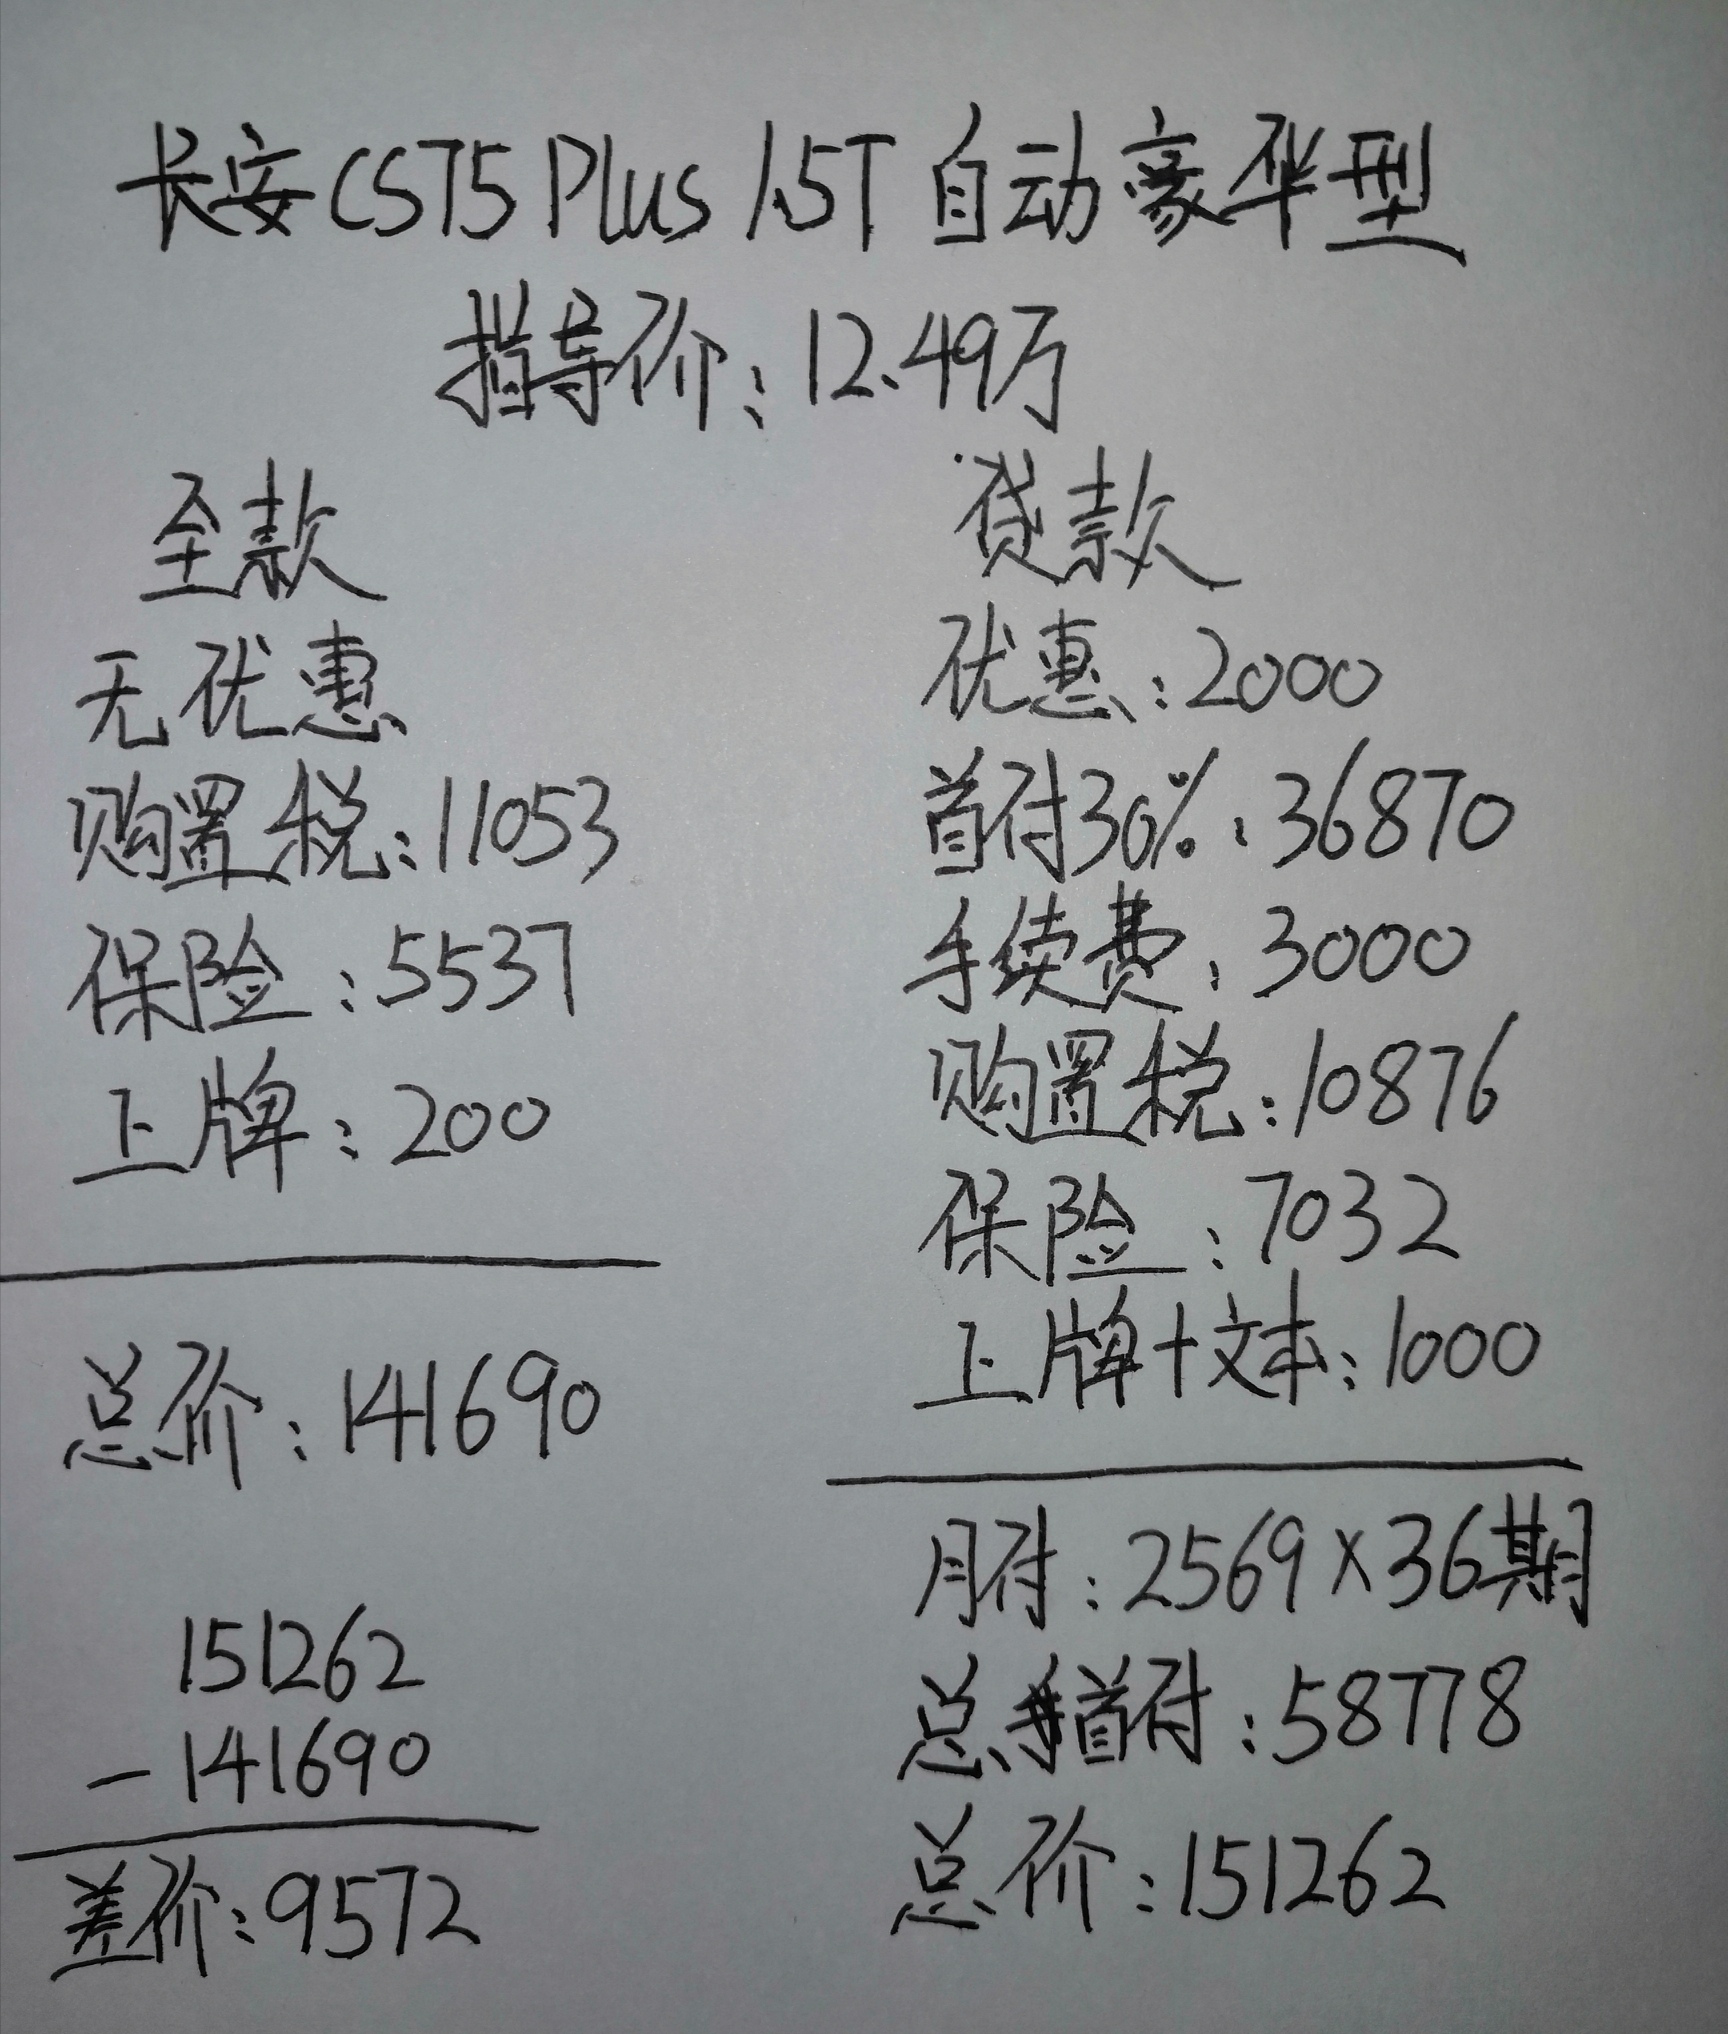 长安CS75 Plus 1.5T 自动豪华型
指导价：12.49万
全款
无优惠
购置税：11053
保险：5537
上牌：200
总价：141690
151262
-141690
差价：9572
贷款
优惠：2000
首付30%：36870
手续费：3000
购置税：10876
保险：7032
上牌+文本：1000
月付：2569×36期
总首付：58778
总价：151262